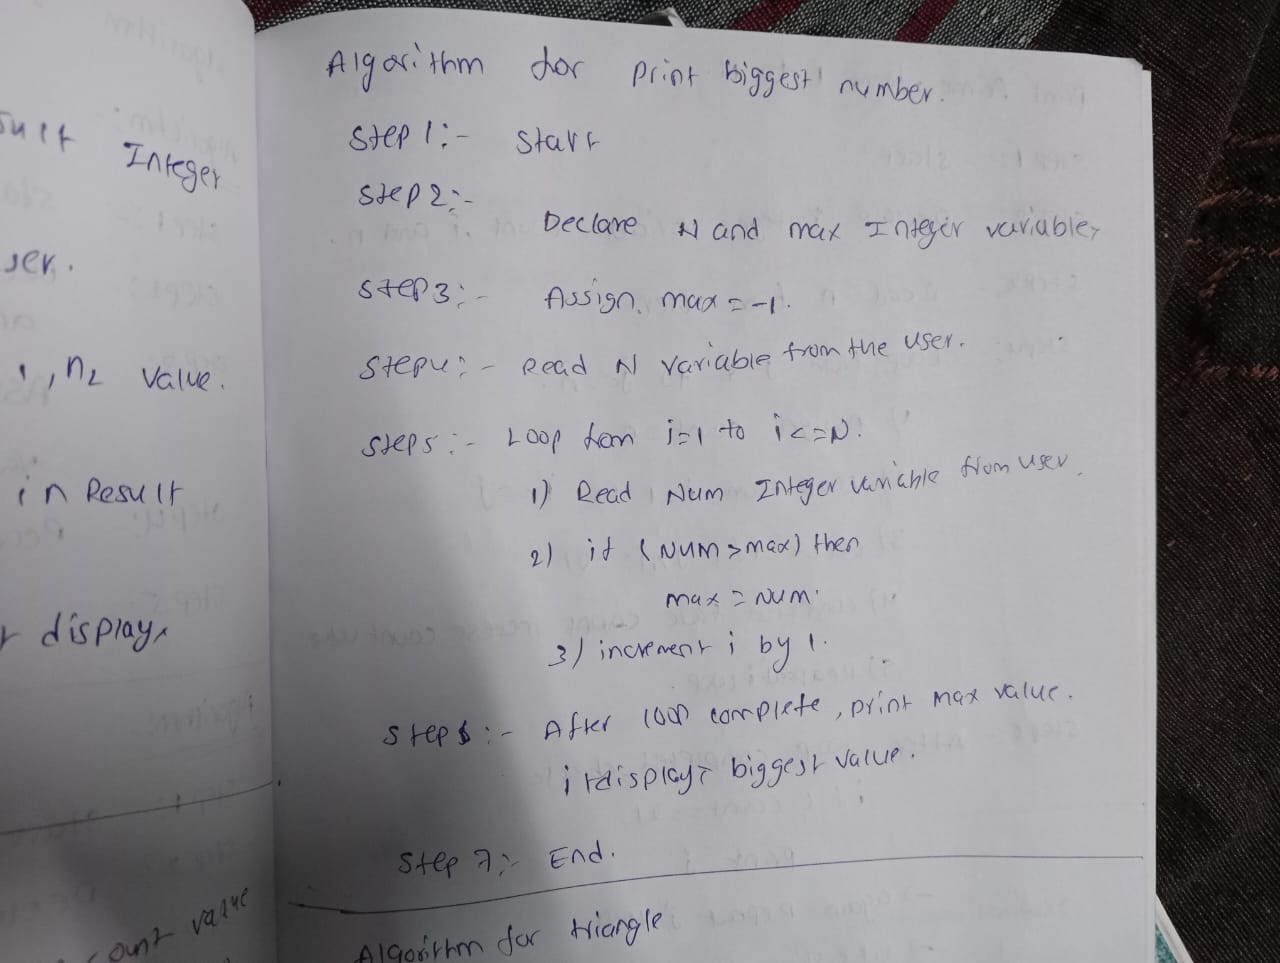 sult Integer
ser.
, n2 value.
in Result
display,
ount value
Algorithm for print biggest number.
Step 1:- Start
Step 2:-
Declare N and max Integer variable,
Step 3:- Assign max = -1.
Step 4:- Read N variable from the user.
Step 5:- Loop from i=1 to i<=N.
1) Read Num Integer variable from user.
2) if (Num > max) then
max = Num.
3) increment i by 1.
Step 6:- After loop complete, print max value.
it display biggest value.
Step 7:- End.
Algorithm for triangle